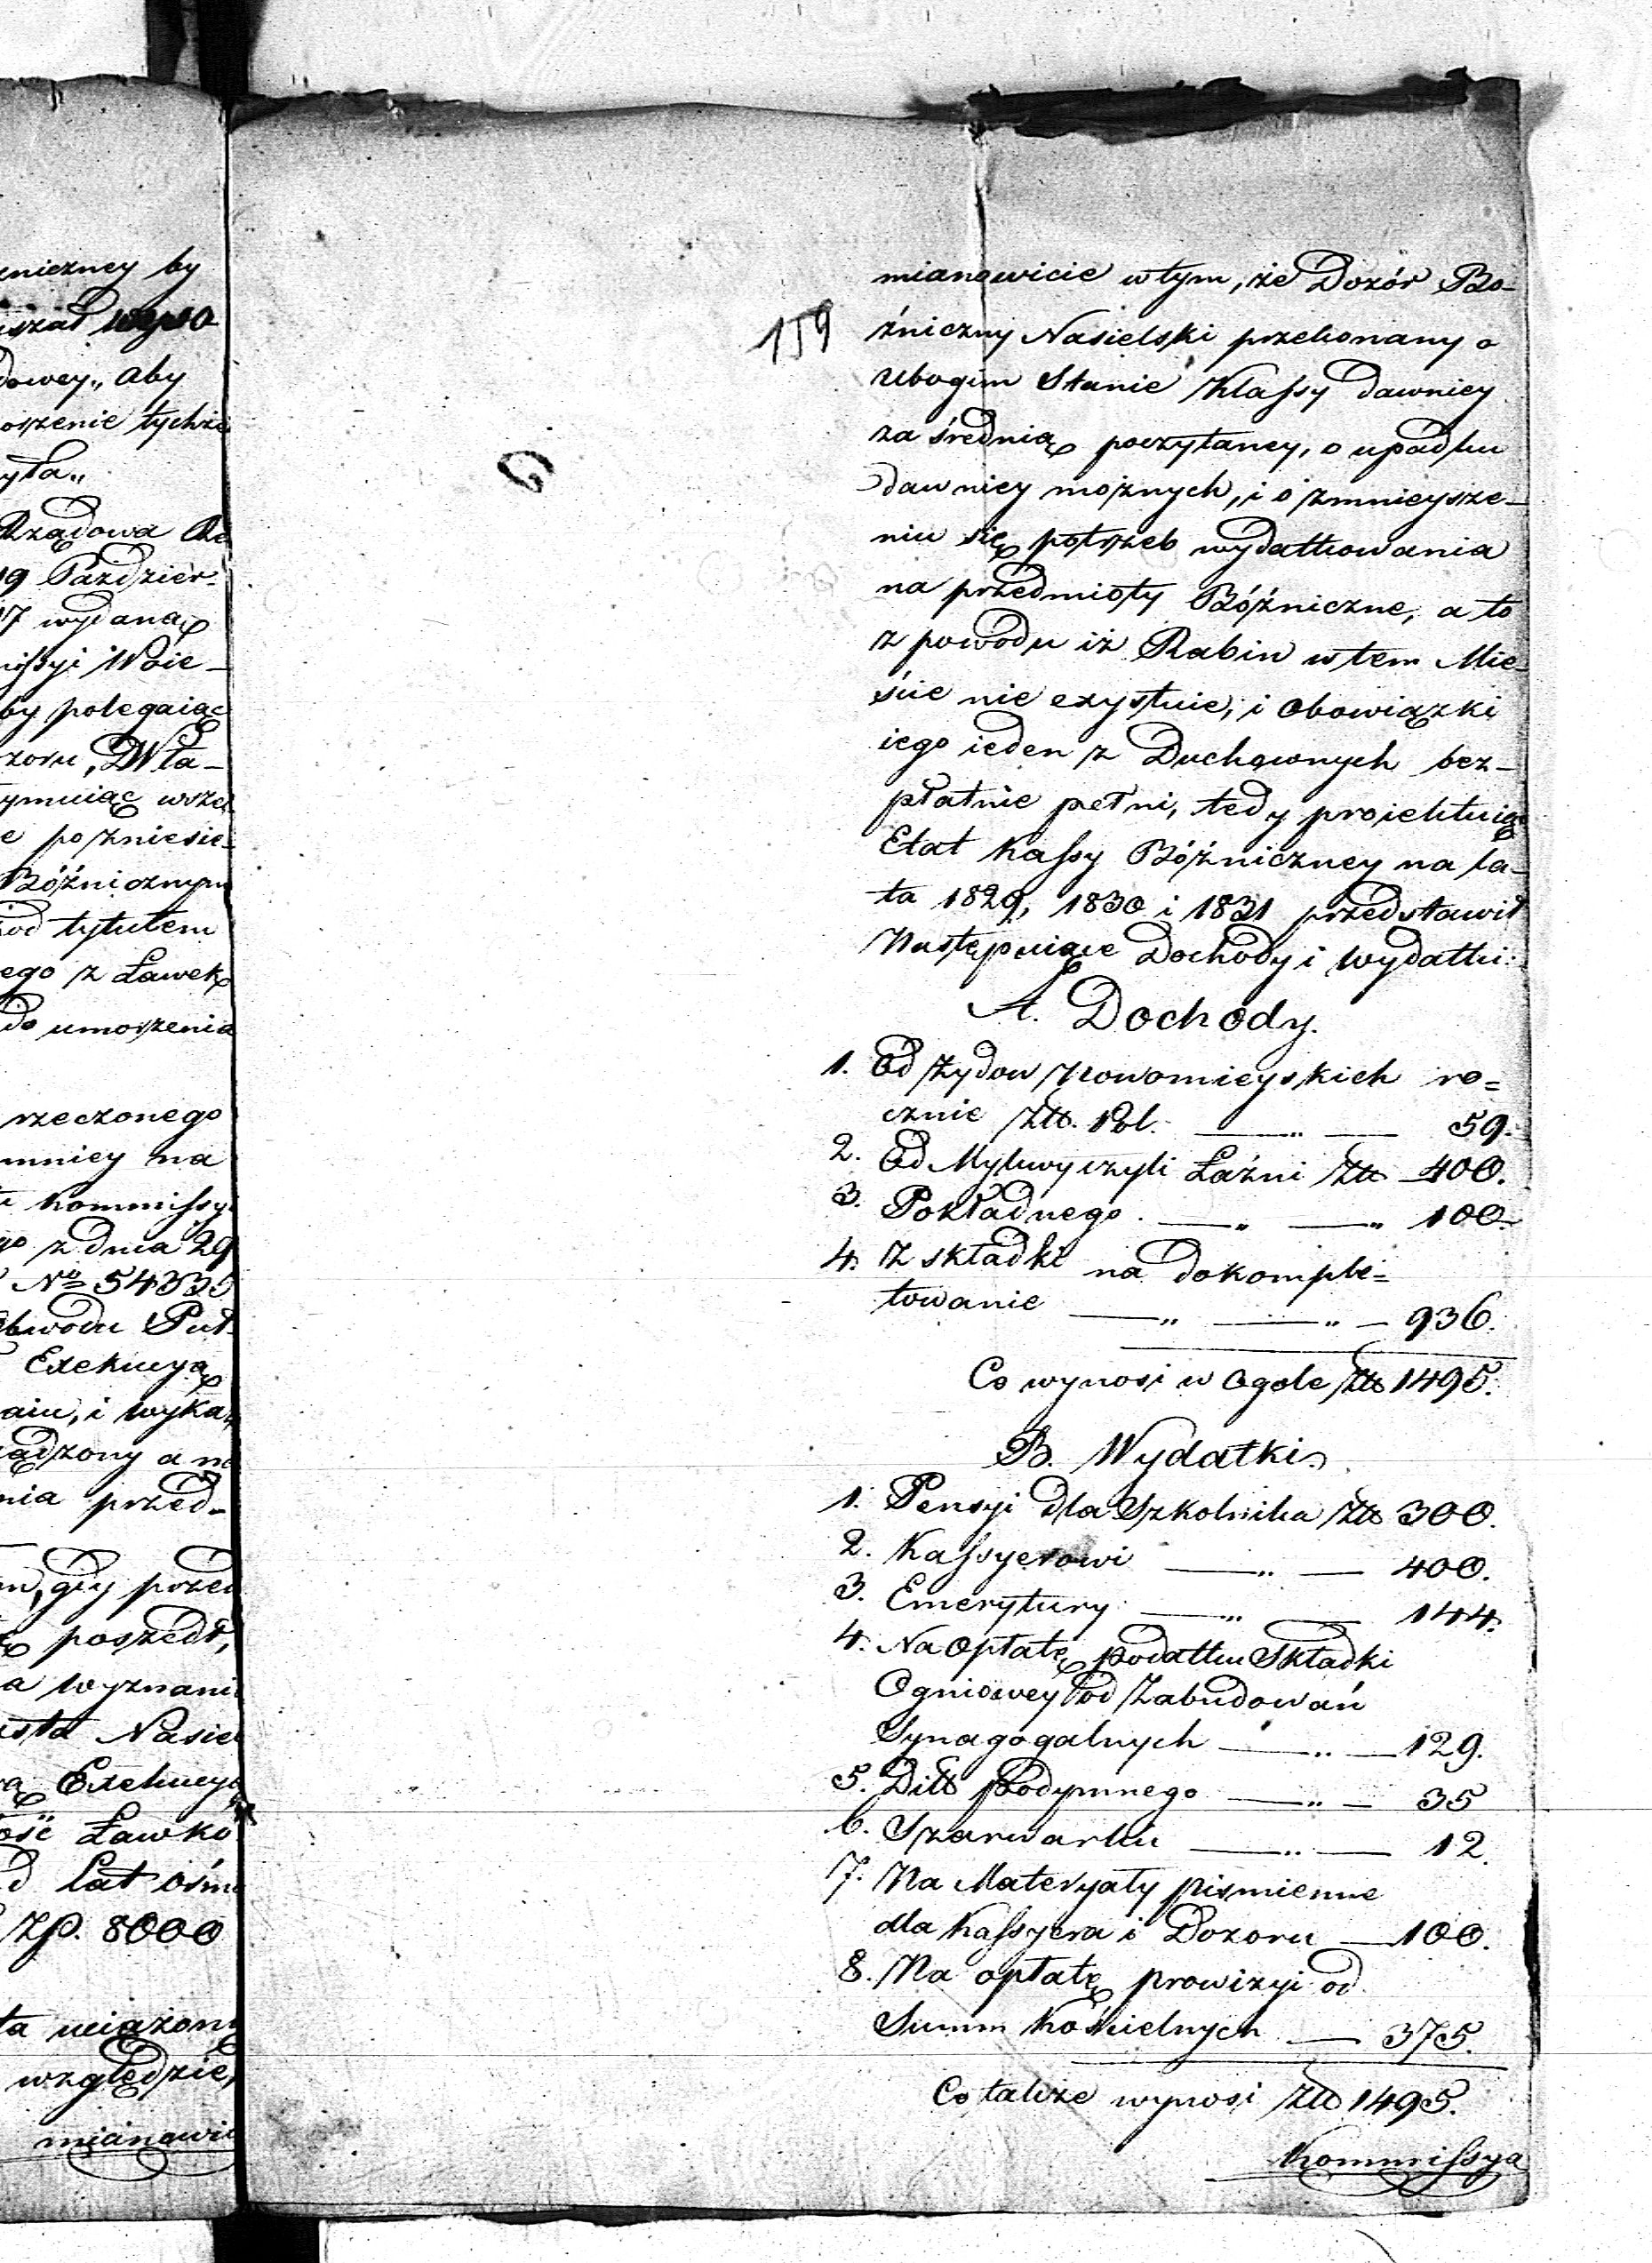 zniczney by
uszał wypo
dowey„ aby
oszenie tychże
yła„
Rządowa
19 Paździer-
17 wydaną
missyi Woie-
by polegaiąc
zoru,
ymuiąc wszel
e pozniesie-
Bóżnicznym
od tytułem
ego z Ławek
do umorzenia
rzeczonego
mniey na
Kommissyi
z dnia 29
No 54335
bwodu Puł-
Exekucyą
aiu, i wyka-
adzony a
nia przed-
gdy przed
poszedł,
a wyznani
asta Nasiel
Exekucyą
ość Ławko
d Lat ośmi
Zp. 8000
ta uciążony
względzie,
mianowi
159
mianowicie w tym, że Dozór Bo-
żniczny Nasielski przekonany o
ubogim Stanie Klassy dawniey
za średnią poczytaney, o upadku
dawniey możnych, i o zmnieysze-
niu się potrzeb wydatkowania
na przedmioty Bóżniczne, a to
z powodu iż Rabin w tem Mie-
ście nie exystuie, i obowiązki
iego ieden z Duchownych bez-
płatnie pełni, tedy proiektuiąc
Etat Kassy Bóżniczney na la-
ta 1829, 1830 i 1831 przedstawił
Następuiące Dochody i Wydatki:
A. Dochody.
1. Od Żydow Nowomieyskich ro=
cznie Złt. Pol. — „ — 59.
2. Od Mykwy czyli Łaźni Złt 400.
3. Pokładnego. — „ — „ 100.
4. Z składki na dokomple=
towanie — „ — „ — 936.
Co wynosi w Ogole Złt 1495.
B. Wydatki.
1. Pensyi dla Szkolnika Złt 300.
2. Kassyerowi — „ — 400.
3. Emerytury — „ — 144.
4. Na Opłatę podatku Składki
Ogniowey od Zabudowań
Synagogalnych — „ — 129.
5. Ditto Podymnego — „ — 35
6. Szarwarku — „ — 12.
7. Na Materyały pismienne
dla Kassyera i Dozoru — 100.
8. Na opłatę prowizyi od
Summ Kościelnych — 375.
Co także wynosi Złt 1495.
Kommissya